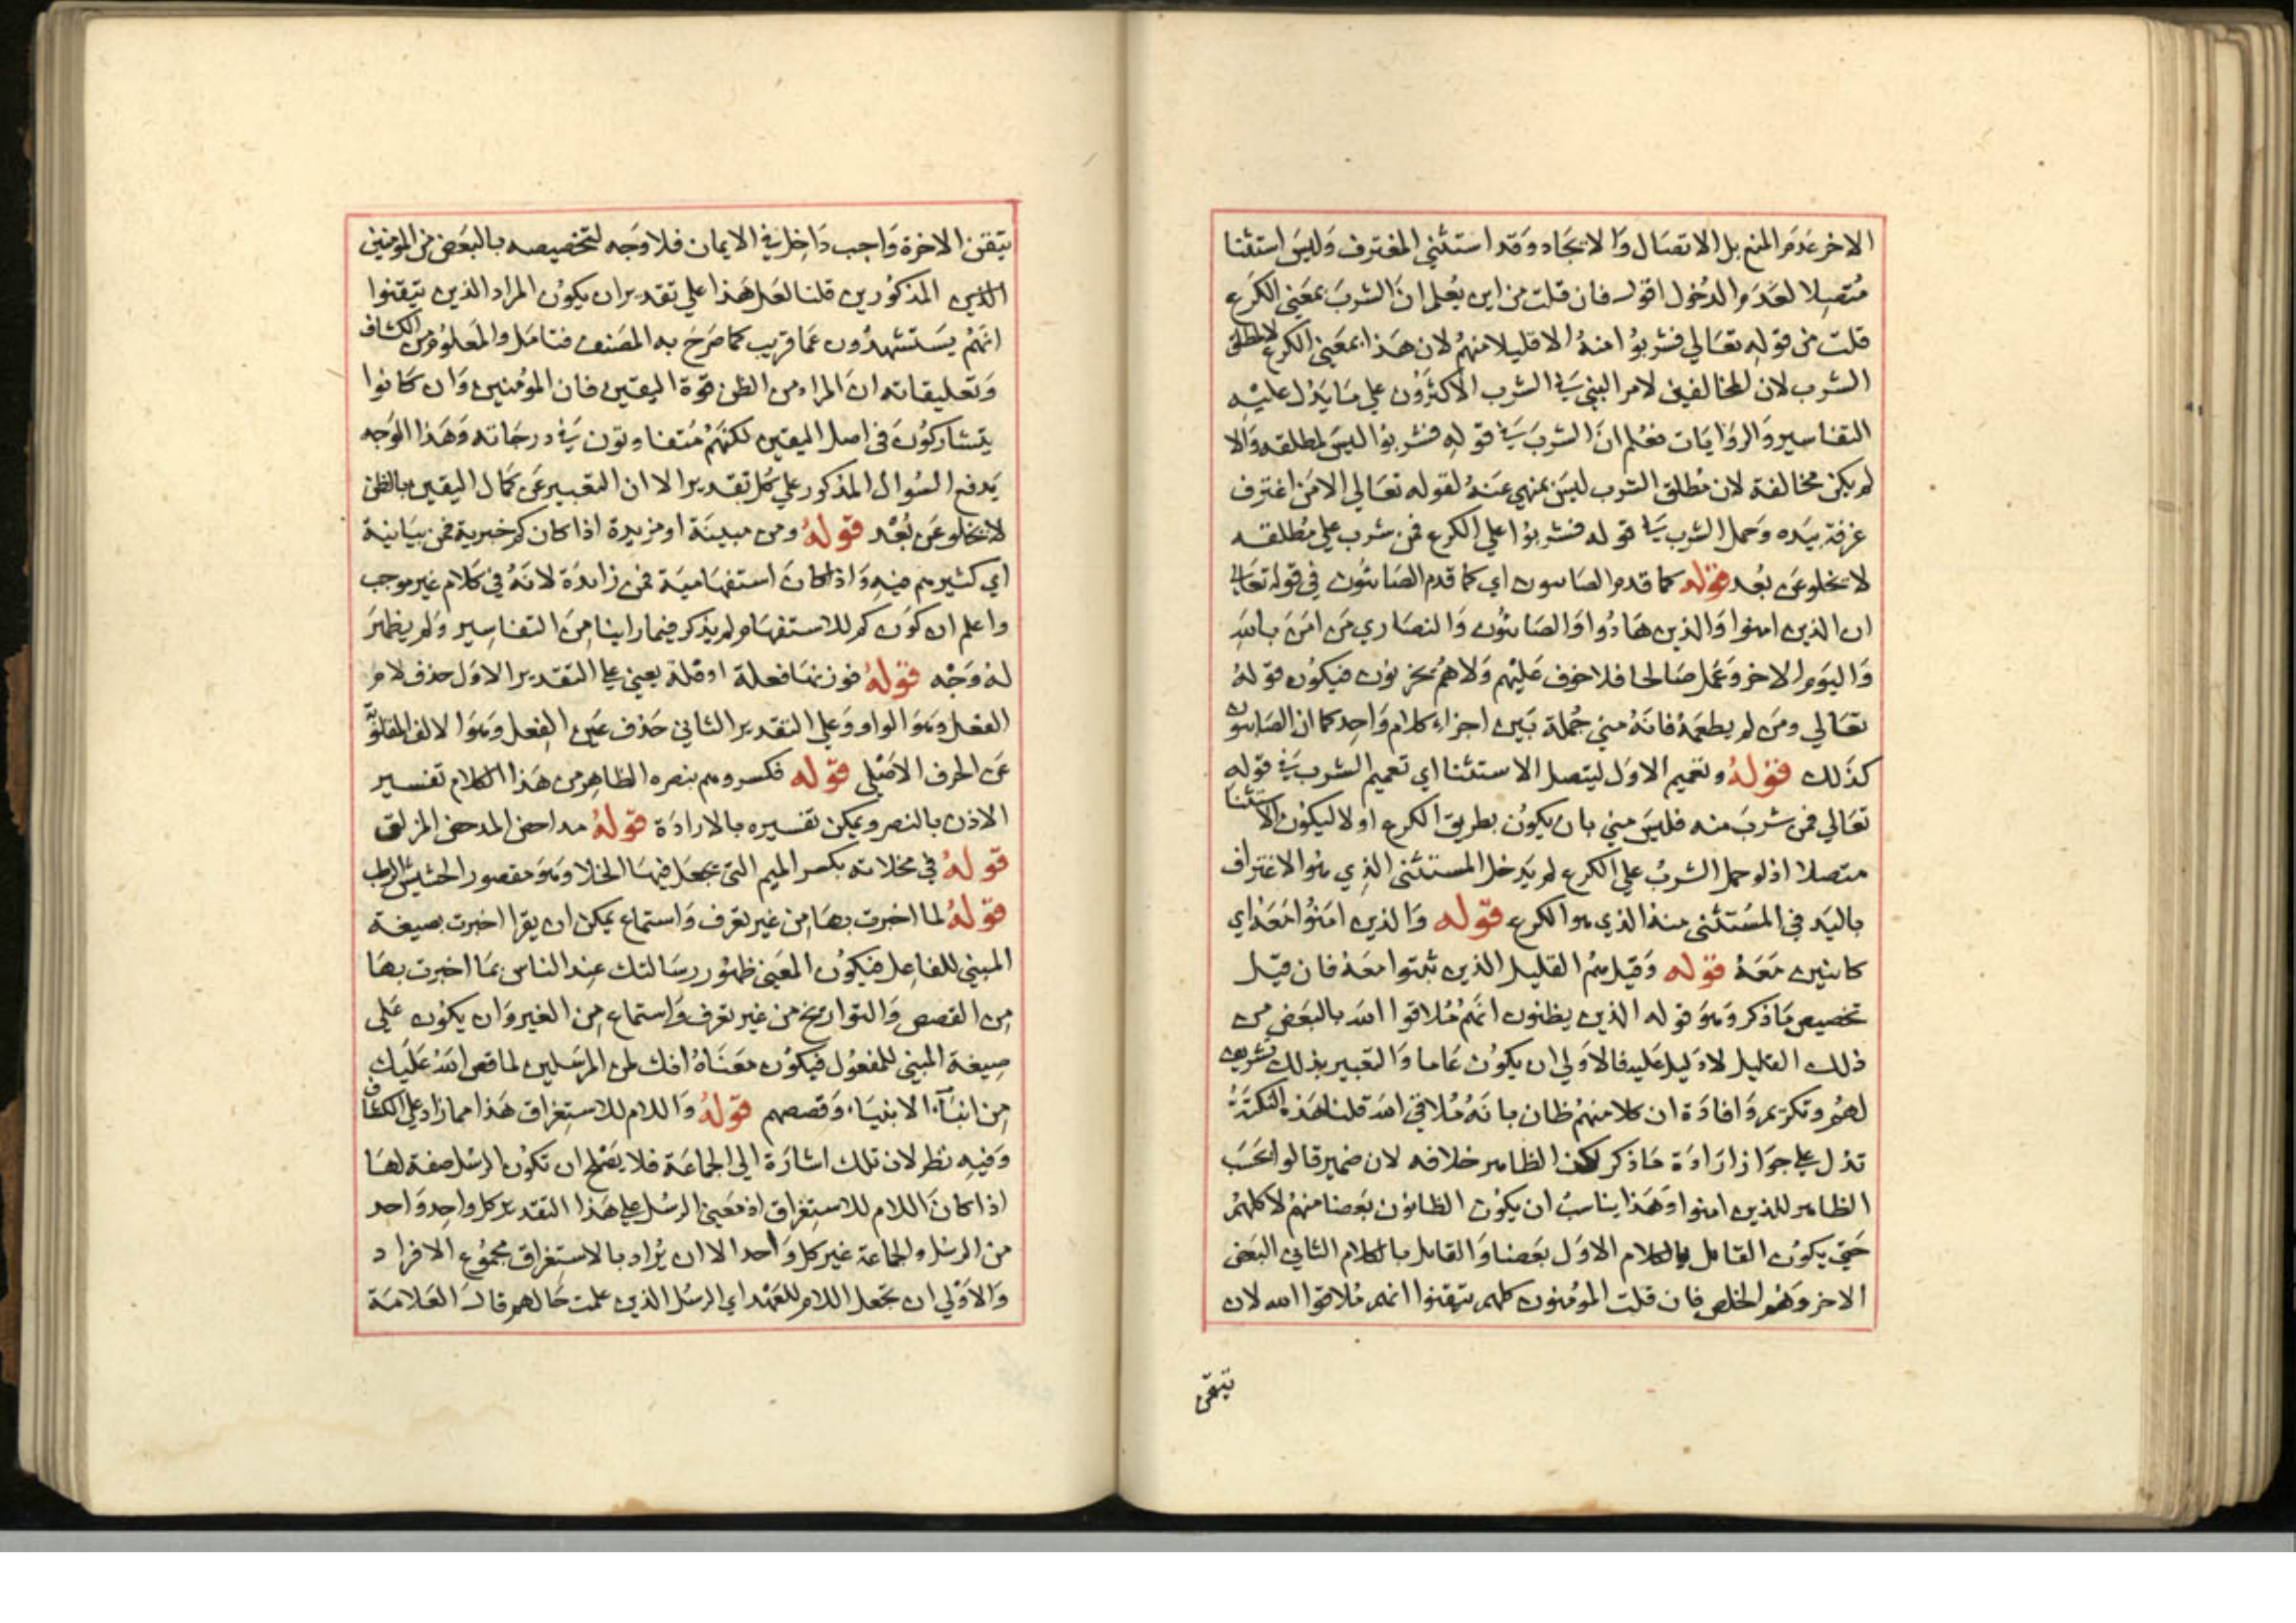 الاخر عدم المنع بل الاتصال والاتحاد وقد استثني المغترف وليس استثنا
متصلا لعدم الدخول اقول فان قلت من اين يعلم ان الشرب بمعني الكرع
قلت من قوله تعالي فشربوا منه الا قليلا منهم لان هذا بمعني الكرع لا مطلق
الشرب لان المخالفين لامر النبي في الشرب الاكثرون علي ما يدل عليه
التفاسير والروايات فعلم ان الشرب في قوله فشربوا ليس لمطلقه والا
لم يكن مخالفة لان مطلق الشرب ليس بمنهي عنه لقوله تعالي الا من اغترف
غرفة بيده وحمل الشرب في قوله فشربوا علي الكرع فمن شرب علي مطلقه
لا يخلو عن بعد قوله كما قدم الصابيون اي كما قدم الصابئون في قوله تعالي
ان الذين امنوا والذين هادوا والصابئون والنصاري من امن بالله
واليوم الاخر وعمل صالحا فلا خوف عليهم ولا هم يحزنون فيكون قوله
تعالي ومن لم يطعمه فانه مني جملة بين اجزاء كلام واحد كما ان الصابيون
كذلك قوله وتعميم الاول ليتصل الاستثنا اي تعميم الشرب في قوله
تعالي فمن شرب منه فليس مني بان يكون بطريق الكرع او لا ليكون الاستثنا
متصلا اذ لو حمل الشرب علي الكرع لم يدخل المستثنى الذي هو الاغتراف
باليد في المستثنى منه الذي هو الكرع قوله والذين امنوا معه اي
كاينين معه قوله وقيل هم القليل الذين ثبتوا معه فان قيل
تخصيص ما ذكر وهو قوله الذين يظنون انهم ملاقوا الله بالبعض من
ذلك القليل لا دليل عليه فالاولي ان يكون عاما والتعبير بذلك تشريف
لهم وتكريم وافادة ان كلا منهم ظان بانه ملاقي الله قلنا هذه النكتة
تدل علي جواز ارادة ما ذكر لكن الظاهر خلافه لان ضمير قالوا بحسب
الظاهر للذين امنوا وهذا يناسب ان يكون الظانون بعضا منهم لا كلهم
حتي يكون القايل بالكلام الاول بعضا والقايل بالكلام الثاني البعض
الاخر وهو الخلص فان قلت المؤمنون كلهم تيقنوا انهم ملاقوا الله لان
تيقن
تيقن الاخرة واجب داخل في الايمان فلا وجه لتخصيصه بالبعض من المؤمنين
الذين المذكورين قلنا لعل هذا علي تقدير ان يكون المراد الذين تيقنوا
انهم يستشهدون عما قريب كما صرح به المصنف فتامل والمعلوم من الكشاف
وتعليقاته ان المراد من الظن قوة اليقين فان المؤمنين وان كانوا
يتشاركون في اصل اليقين لكنهم متفاوتون في درجاته وهذا الوجه
يدفع السوال المذكور علي كل تقدير الا ان التعبير عن كمال اليقين بالظن
لا يخلو عن بعد قوله ومن مبينة او مزيدة اذا كان كم خبرية فمن بيانية
اي كثير من فيه واذا كان استفهامية فمن زايدة لانه في كلام غير موجب
واعلم ان كون كم للاستفهام لم يذكر فيما راينا من التفاسير ولم يظهر
له وجه قوله فوزنها فعلة او فلة يعني علي التقدير الاول حذف لام
الفعل وهو الواو وعلي التقدير الثاني حذف عين الفعل وهو الالف المقلوبة
عن الحرف الاصلي قوله فكسروهم بنصره الظاهر من هذا الكلام تفسير
الاذن بالنصر ويمكن تفسيره بالارادة قوله مداحض المدحض المزلق
قوله في مخلاته بكسر الميم التي يجعل فيها الخلا وهو مقصور الحشيش الرطب
قوله لما اخبرت بها من غير تعرف واستماع يمكن ان يقرا اخبرت بصيغة
المبني للفاعل فيكون المعني ظهور رسالتك عند الناس بما اخبرت بها
من القصص والتواريخ من غير تعرف واستماع من الغير وان يكون علي
صيغة المبني للمفعول فيكون معناه انك لمن المرسلين لما قص الله عليك
من انباء الانبياء وقصصهم قوله واللام للاستغراق هذا مما زاد علي الكشاف
وفيه نظر لان تلك اشارة الي الجماعة فلا يصلح ان تكون الرسل صفة لها
اذا كان اللام للاستغراق اذ معني الرسل علي هذا التقدير كل واحد واحد
من الرسل والجماعة غير كل واحد الا ان يراد بالاستغراق مجموع الافراد
والاولي ان تجعل اللام للعهد اي الرسل الذين علمت حالهم قال العلامة